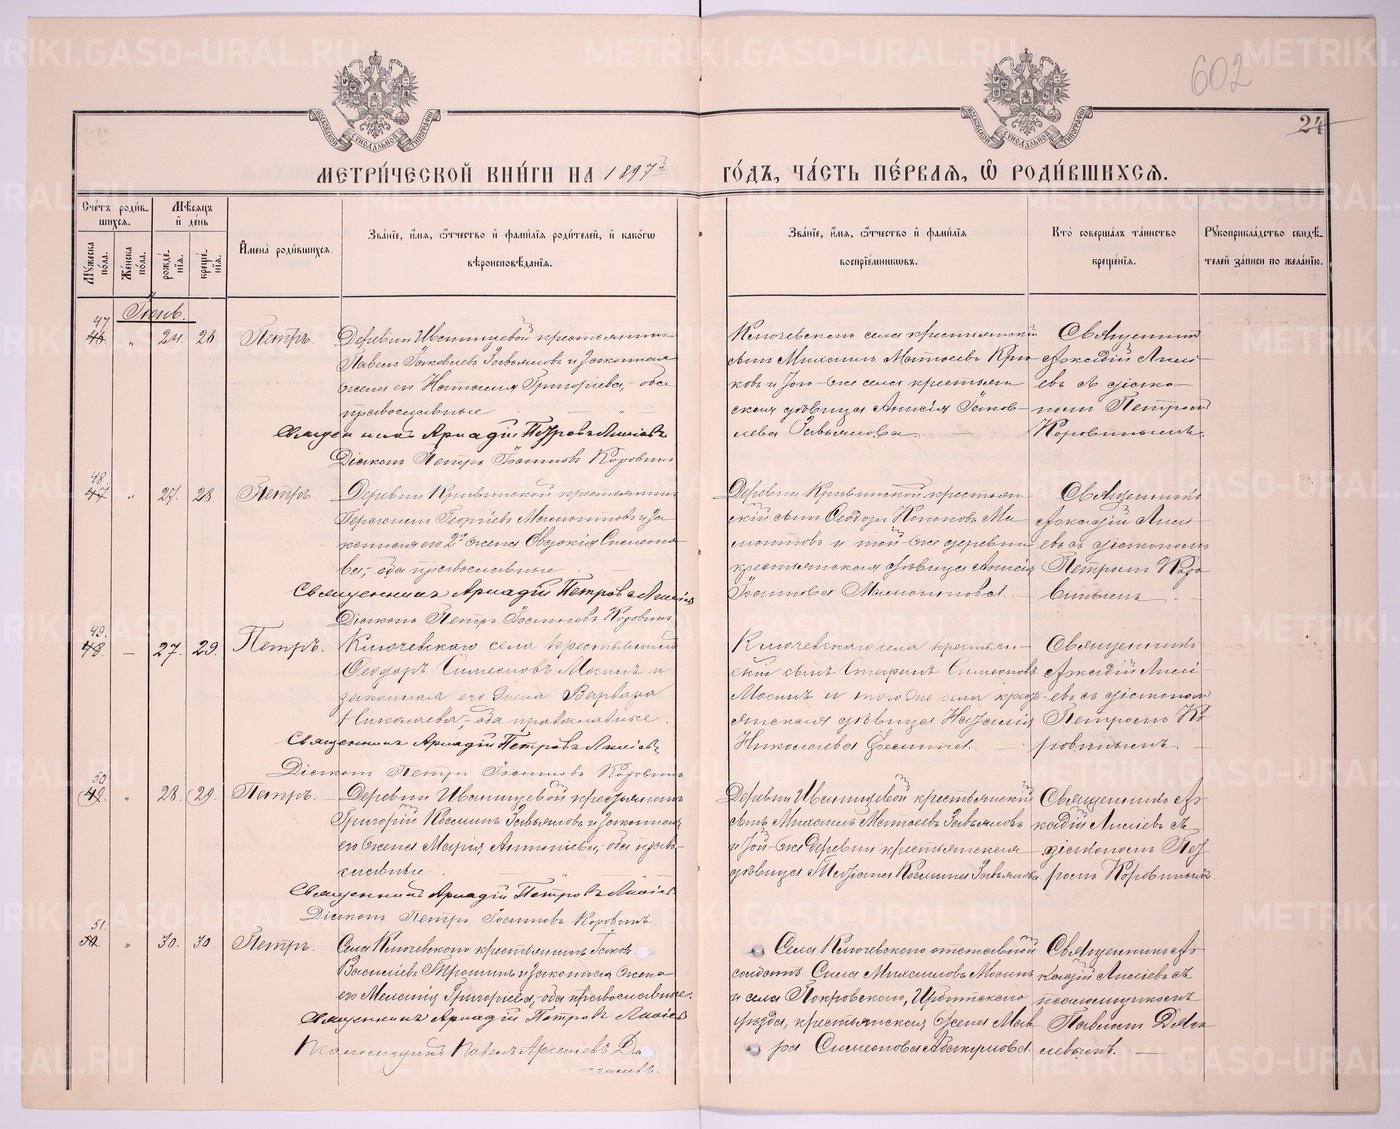 602
24
МЕТРИ́ЧЕСКОЙ КНИ́ГИ НА 1897й ГО́ДЪ, ЧА́СТЬ ПЕ́РВАѦ, Ѡ РОДИ́ВШИХСѦ.
Сче́тъ роди́в-
шихся.
Мѣ́сяцъ
и де́нь
Му́жеска по́ла.
Же́нска по́ла.
рожде́-
нія.
креще́-
нія.
Имена̀ роди́вшихся.
Зва́ніе, и́мя, ѻ́тчество и фами́лія роди́телей, и како́гѡ
вѣроисповѣ́данія.
Зва́ніе, и́мя, ѻ́тчество и фами́лія
воспріе́мниковъ.
Кто̀ соверша́лъ та́инство
креще́нія.
Рꙋкоприкла́дство свидѣ́-
телей за́писи по жела́нію.
Іюнь.
47
46 " 24. 26 Петръ.
Деревни Иванищевой крестьянинъ
Павелъ Іаковлевъ Завьяловъ и законная
жена его Наталия Григоріева,- оба
православные
Священникъ Аркадій Петровъ
Діаконъ Петръ Іоанновъ Коровинъ
Ключевскаго села крестьянскій
сынъ Михаилъ Матѳеевъ Крю-
ковъ и того-же села крестьян-
ская дѣвица Анисія Іаков-
лева Завьялова.
Священникъ
Аркадій
евъ съ діако-
номъ Петромъ
Коровинымъ.
48.
47 " 27. 28 Петръ.
Деревни Кривинской крестьянинъ
Георгіевъ Мамонтовъ и за-
конная его 2я жена Евдокія Симеоно-
ва,- оба православные
Священникъ Аркадій Петровъ
Діаконъ Петръ Іоанновъ Коровинъ
Деревни Кривинской крестьян-
скій сынъ Ѳеодоръ Кононовъ Ма-
монтовъ и той-же деревни
крестьянская дѣвица Анисія
Іоаннова Мамонтова
Священникъ
Аркадій
евъ съ діакономъ
Петромъ Коро-
винымъ
49.
48 — 27. 29. Петръ.
Ключевскаго села крестьянинъ
Ѳеодоръ Симеоновъ Мосинъ и
законная его жена Варвара
Николаева,- оба православные.
Священникъ Аркадій Петровъ
Діаконъ Петръ Іоанновъ Коровинъ
Ключевскаго села крестьян-
скій сынъ Стефанъ Симеоновъ
Мосинъ и того-же села кресть-
янская дѣвица Наталия
Николаева
Священникъ
Аркадій
евъ съ діакономъ
Петромъ Ко-
ровинымъ.
50
49 " 28. 29. Петръ.
Деревни Иванищевой крестьянинъ
Григорій Косминъ Завьяловъ и законная
его жена Марія Антоніева,- оба право-
славные.
Священникъ Аркадій Петровъ
Діаконъ Петръ Іоанновъ Коровинъ
Деревни Иванищевой крестьянскій
сынъ Михаилъ Матѳеевъ Завьяловъ
и той-же деревни крестьянская
дѣвица Татіана Космина Завьялова
Священникъ Ар-
кадій съ
діакономъ Пет-
ромъ Коровинымъ.
51.
50. " 30. 30. Петръ.
Села Ключевского крестьянинъ Іаковъ
Василіевъ Трошинъ и законная жена
его Меланія Григоріева, оба православные.
Священникъ Аркадій Петровъ
Псаломщикъ Павелъ Арсеніевъ
Села Ключевского отставной
солдатъ Сила Михаиловъ Мосинъ
и села Покровского, Ирбитского
уѣзда, крестьянская жена Мав-
ра Симеонова Абакумова.
Священникъ Ар-
кадій съ
псаломщикомъ
Павломъ